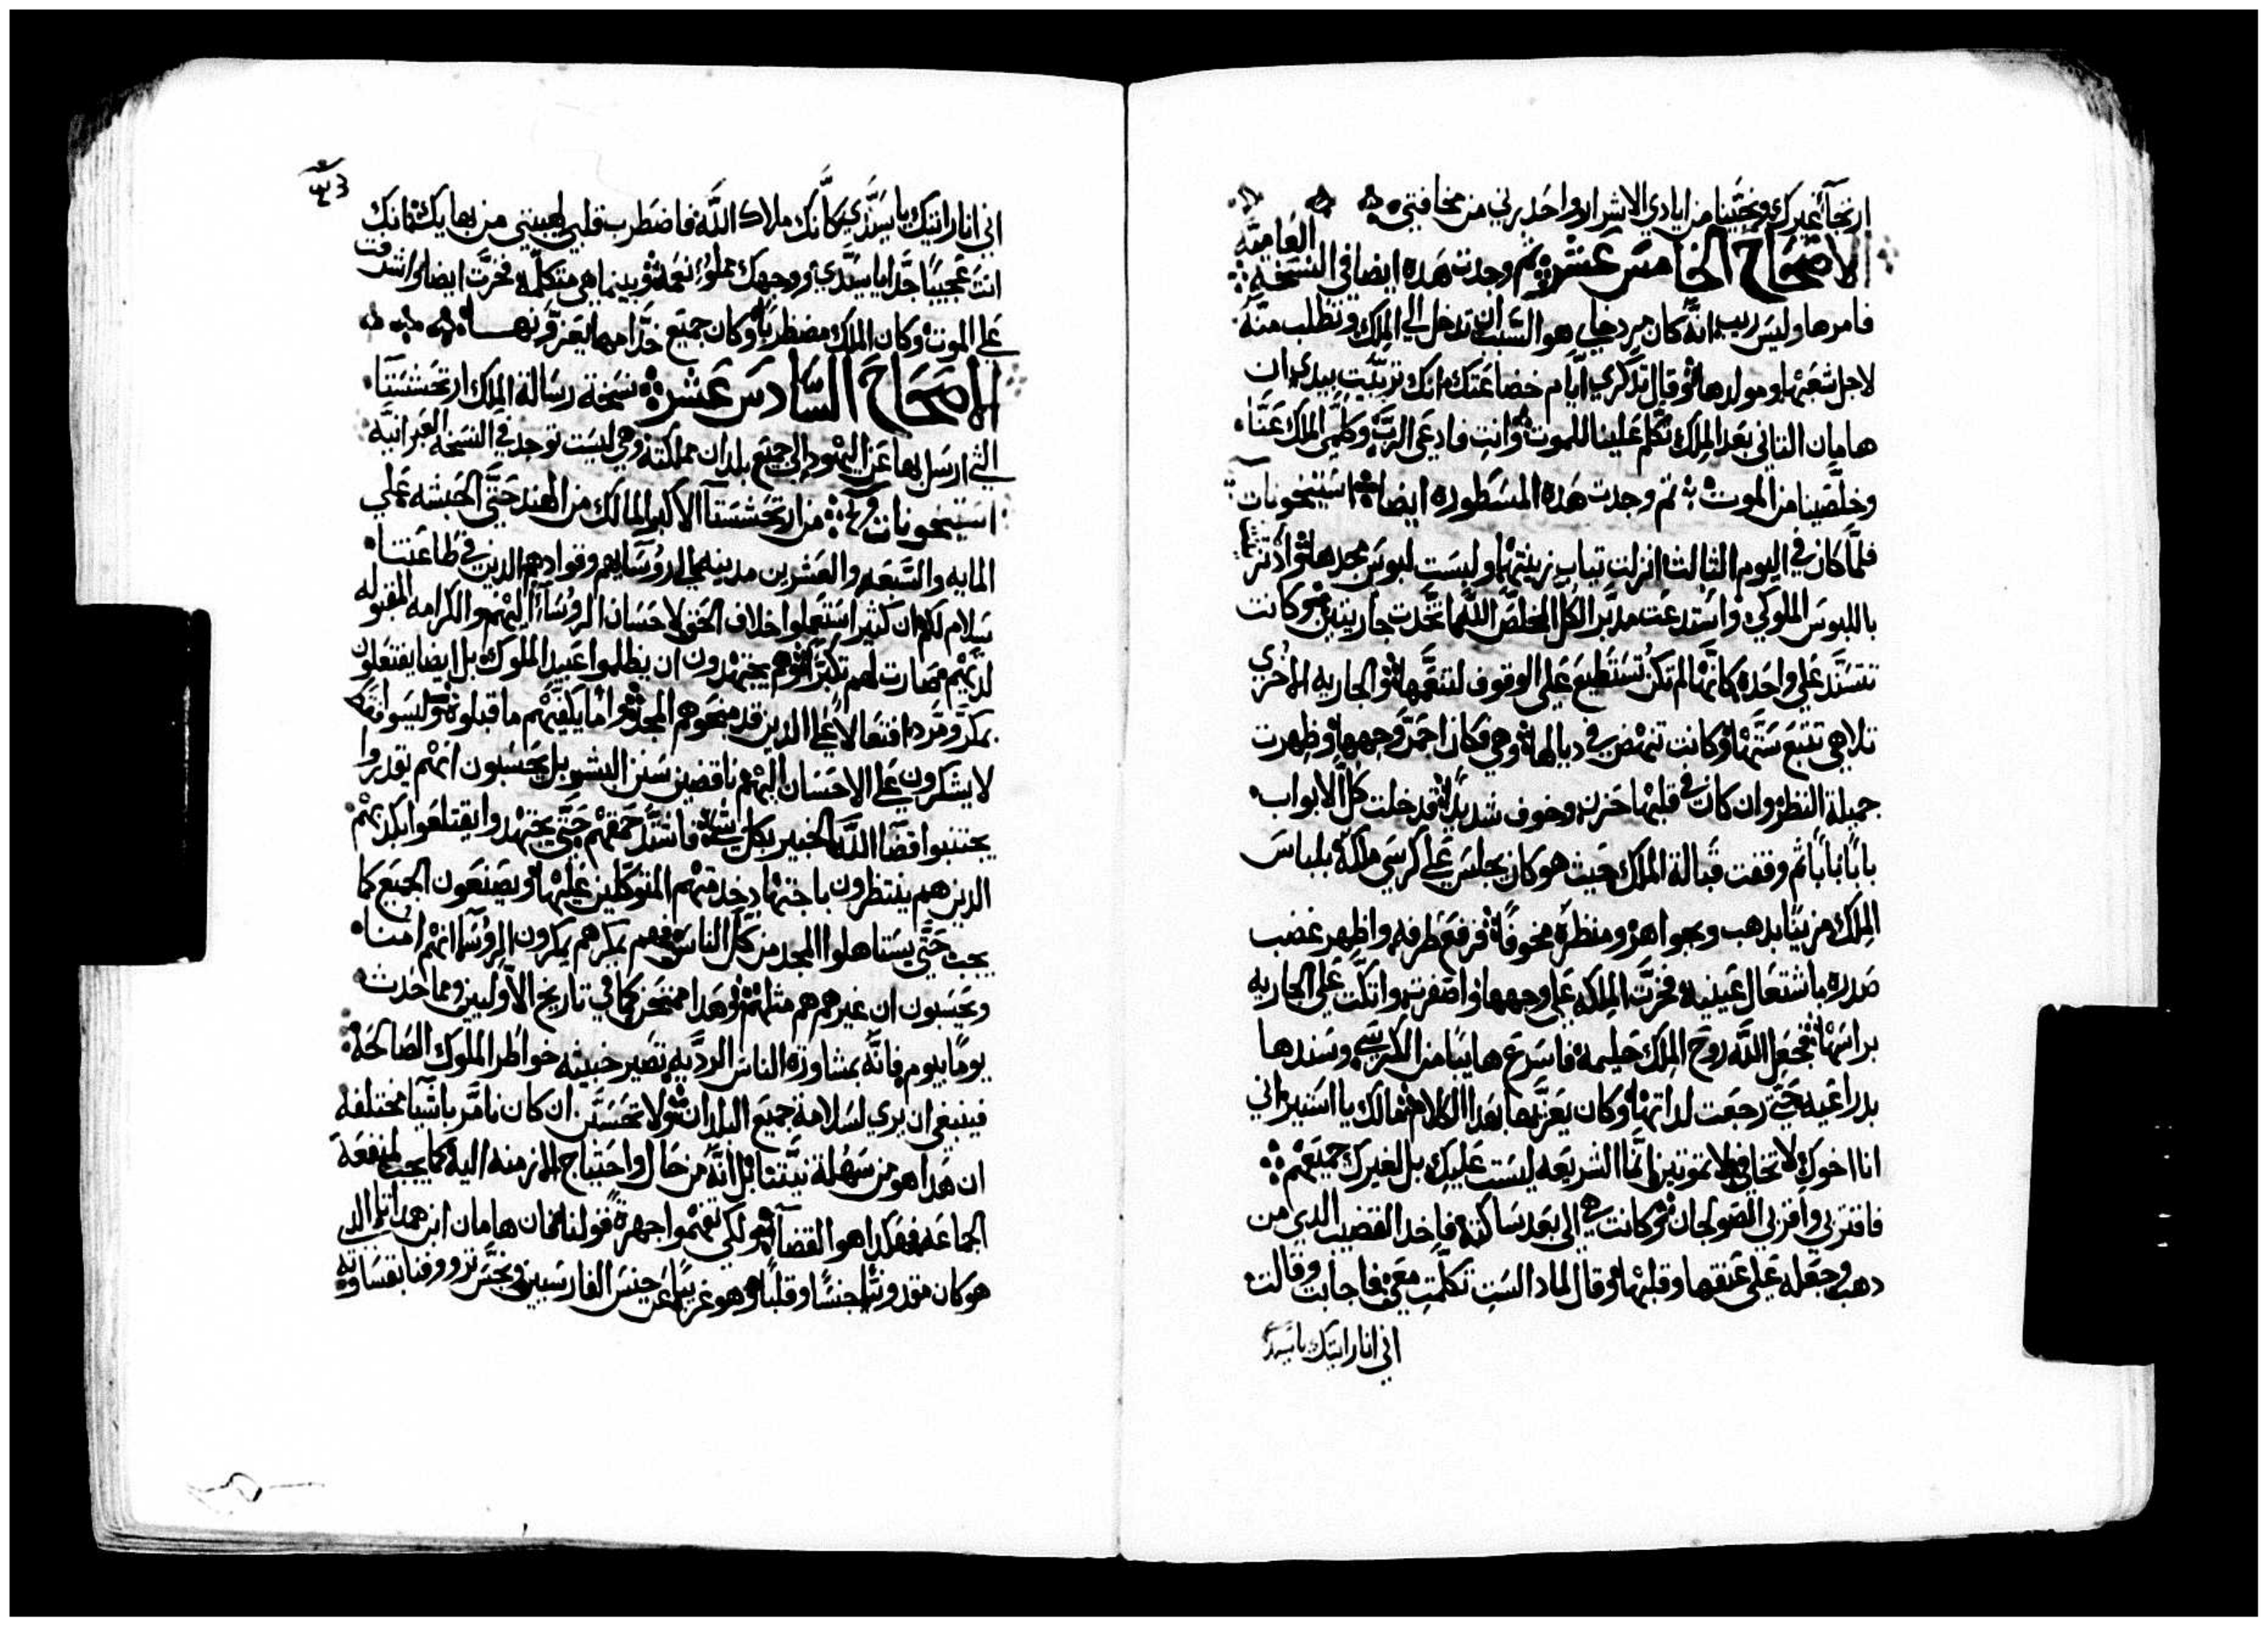 ارتجآء غيرك ونجينا من ايادي الاشرار واحدرني من مخافتي
الاصحاح الخامس عشر ثم وجدت هده ايضا في النسخه العاميه
فامرها وليس ريب انه كان مردخاي هو السبب ان تدخل الي الملك وتطلب منه
لاجل شعبها ومولدها وقال تدكري ايام خضاعتك انك تربيت بيدي ان
هامان الثاني بعد الملك تكلم علينا للموت وانتِ فادعي الرب وكلمي الملك عنا
وخلصينا من الموت ثم وجدت هده المسطوره ايضا استيخونات
فلما كان في اليوم الثالث انزلت تياب زينتها ولبست لبوس مجدها واد تزينت
باللبوس الملوكي واستدعت مدبر الكل المخلص اللّه اتخدت جاريتين وكانت
تتسند علي واحده كانها لم تكن تستطيع علي الوقوف لتنعمها والجاريه الاخري
تلاهي تتبع ستها وكانت تنهض في ديالها وهي فكان احمر وجهها وظهرت
جميلة النظر وان كان في قلبها حزن وخوف شديد قد خلت كل الابواب
بابًا بابًا ثم وقفت قبالة الملك حيث هو كان يجلس علي كرسي ملكه بلباس
الملك مزينًا بدهب وبجواهر ومنظره مخوفًا فرفع طرفه واظهر غضب
صدره باشتعال عينيه فخرت الملكه علي وجهها واصفرت واتكت علي الجاريه
براسها فجعل اللّه روح الملك حليمه فاسرع هايبًا من الكرسي وسندها
بدراعيه حتي رجعت لداتها وكان يعزيها بهدا الكلام مالك يا استير اني
انا اخوك لا تخافي فلا تموتين انما الشريعه ليست عليكِ بل لغيرك جميعهم
فاقتربي واقربي الصولجان وكانت هي الي بعد ساكته فاخد القضيب الدي من
دهب وجعله علي عنقها وقبلها وقال لمادا لستِ تكلمتِ معي فاجابت وقالت
اني انا رايتك يا سيدي
اني انا رايتك يا سيدي كانك ملاك اللّه فاضطرب قلبي لهيبتي من بهايك فانك
انت عجيبًا جدًا يا سيدي ووجهك مملوء نعمة وبينما هي متكلمة فخرت ايضا واشرفت
علي الموت وكان الملك مضطربًا وكان جميع خدامهما يعزونها
الاصحاح السادس عشر نسخة رسالة الملك ارتحشستا
التي ارسل بها عن اليهود الي جميع بلدان مملكته وهي ليست توجد في النسخه العبرانيه
استيخونات من ارتحشستا الاكبر المالك من الهند حتي الحبشه علي
المايه والسبعه والعشرين مدينه الي الروسايهم وقوادهم الدين في طاعتنا
سلام لكم ان كثير استعملوا خلاف الحق لاحسان الروسآء اليهم والكرامه المقبوله
لديهم فصارت لهم تكبرًا وهم يجتهدون ان يظلموا عبيد الملوك بل ايضا يفتعلون
بمكر وتمرد افتعالا علي الدين قد منحوهم المجد واما يكفيهم ما قبلوه وليسوا فقط
لا يشكرون علي الاحسان اليهم ناقضين سنن البشر بل يحسبون انهم يقدروا
يجتنبوا قضآ اللّه الخبير بكل شي فاشتد حمقهم حتي يجتهدوا يقتلعوا بكدبهم
الدين هم ينتظرون باجتهاد خدمتهم المتوكلين عليها ويصنعون الجميع كما
يجب حتي يستاهلوا المجد من كل الناس فهم بمكرهم يمكرون الروسآ انهم امنا
ويحسبون ان غيرهم هم مثلهم وهدا ممتحن كما في تاريخ الاولين ومما حدث
يومًا بيوم فانه بمشاورة الناس الرديه تصير خبيثه خواطر الملوك الصالحه
فينبغي ان يري لسلامة جميع البلدان ولا تحسبن ان كان نامر باشيآ مختلفه
ان هدا هو من سهلة نيتنا بل انه من حال واحتياج الازمنه اليه كما يجب لمنفعة
الجماعه فهكدا هو القضآ ولكي تفهموا جهرة قولنا فان هامان ابن همداثا الدي
هو كان مقدونيًا جنسًا وقلبًا وهو غريبًا عن جنس الفارسيين ونجس تروفنا بقساوته